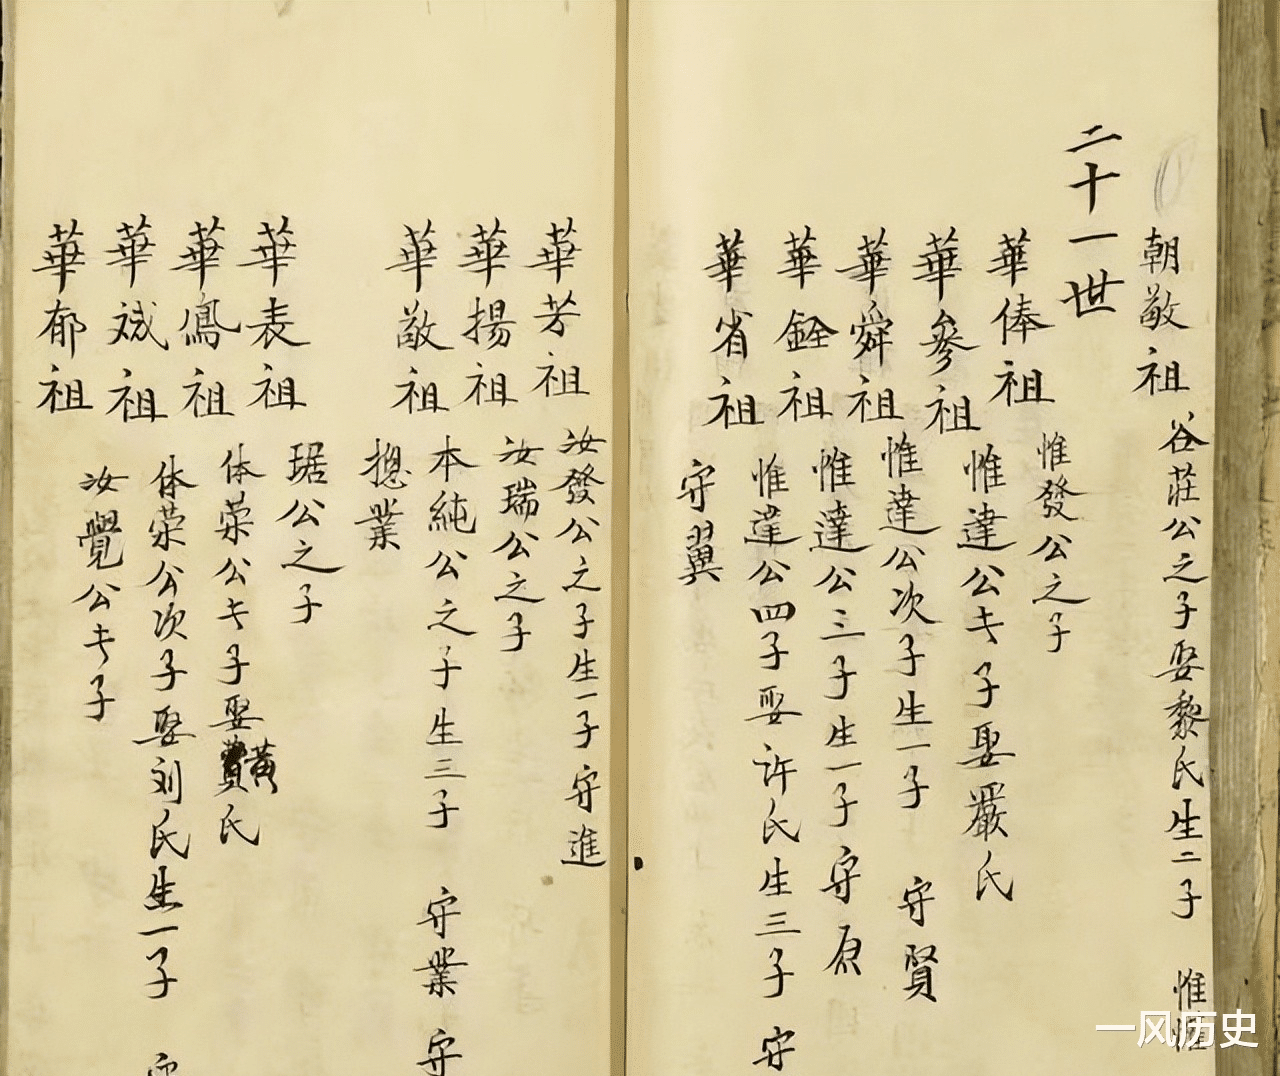 朝敬祖
谷莊公之子娶黎氏生二子 惟
二十一世
華俸祖
惟發公之子
華參祖
惟達公长子娶嚴氏
華舜祖
惟達公次子生一子 守賢
華銓祖
惟達公三子生一子 守原
華省祖
惟達公四子娶许氏生三子 守
守翼
華芳祖
汝發公之子生一子 守進
華揚祖
汝瑞公之子
華敬祖
本純公之子生三子 守業 守
摠業
華表祖
琚公之子
華鳳祖
体荣公长子娶黃氏
華斌祖
体荣公次子娶刘氏生一子
華郁祖
汝覺公长子
一风历史